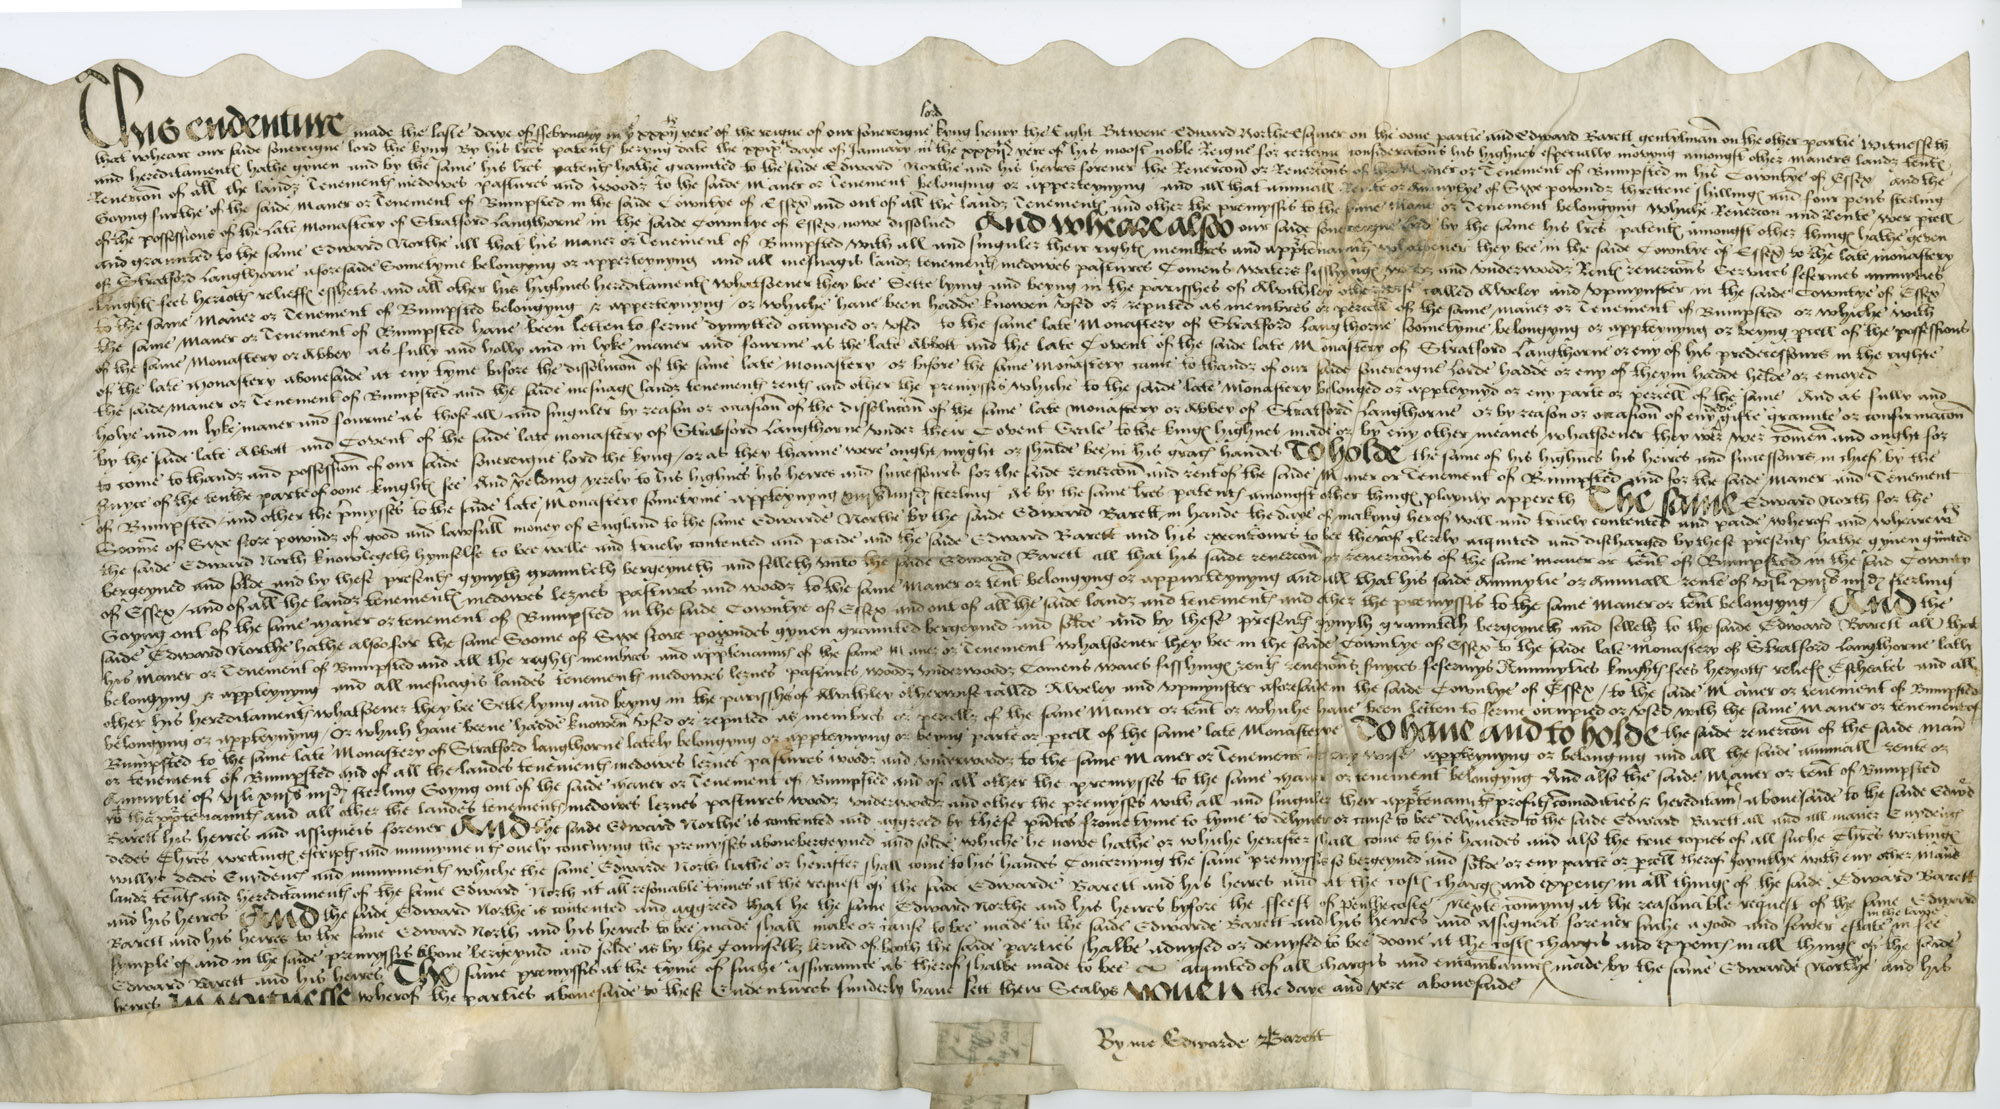 lord
This endenture made the laste daye of ffebruary in yᵉ xxxijᵗʰ yere of the reigne of our sovereigne kyng henry the Eight Bitwene Edward Northe Esquier on the oone partie and Edward Barett gentylman on the other partie Witnesseth
that wheare our saide sovereigne lord the kyng By his lres patentꝭ beryng date the xxixᵗʰ daye of January in the xxxijᵗʰ yere of his moost noble Reigne for certeyne consideratons his highnes especially moving amongst other maners landꝭ tentꝭ
and hereditamentꝭ hathe gyven and by the same his lres patentꝭ hathe graunted to the saide Edward Northe and his heires forever the Revercōn or Revercons of the Maner or Tenement of Bumpsted in his Cowntye of Essex and the
Revercōn of all the landꝭ Tenementꝭ medowes pastures and woodꝭ to the saide Maner or Tenement belonging or apperteynyng and all that annuall Rente or Annuytye of Syxe powndꝭ threttene shillingꝭ and four pens sterling
Goyng furthe of the saide Maner or Tenement of Bumpsted in the saide Cowntye of Essex and out of all the landꝭ Tenementꝭ and other the premyssis to the same Maner or Tenement belongyng whiche Revercon and Rente wer pcell
of the possessions of the late Monastery of Stratford Langthorne in the saide Cowntye of Essex nowe dissolved And wheare also our saide sovereigne lord by the same his lres patentꝭ amongst other thingꝭ hathe geven
and graunted to the same Edward Northe all that his Maner or Tenement of Bumpsted with all and singuler their rightꝭ membres and apptenauncꝭ whatsoever they bee in the saide Cowntye of Essex to the late monastery
of Stratford Langthorne aforesaide sometyme belongyng or apperteynyng and all mesuagis landꝭ tenementꝭ medowes pastures Comens waters fisshyngꝭ woodꝭ and underwoodꝭ Rentꝭ revercons Services feefermes annuyties
knyghtꝭ fees heriottꝭ relieffꝭ esshetis and all other his highnes hereditamentꝭ whatsoever they bee Sette lying and beyng in the parisshes of Alvithley otherwise called Alveley and Upmynster in the saide Cowntye of Essex
to the same Maner or Tenement of Bumpsted belongyng or apperteynyng or whiche have been hadde knowen used or reputed as membres or percell of the same Maner or Tenement of Bumpsted or whiche with
the same Maner or Tenement of Bumpsted have been letten to ferme dymytted occupied or used to the same late Monastery of Stratford Langthorne Sometyme belongyng or appteynyng or beyng pcell of the possessions
of the same Monastery or Abbey as fully and holly and in lyke maner and fourme as the late Abbott and the late Covent of the saide late Monastery of Stratford Langthorne or eny of his predecessours in the righte
of the late Monastery abovesaide at eny tyme bifore the dissolucōn of the same late Monastery or bifore the same Monastery came to thandꝭ of our saide sovereigne lorde hadde or eny of theym hadde helde or enioyed
the saide Maner or Tenement of Bumpsted and the saide mesuagꝭ landꝭ tenementꝭ rentꝭ and other the premyssis whiche to the saide late Monastery belonged or appteynyd or eny parte or percell of the same And as fully and
holye and in lyke maner and fourme as those all and singuler by reason or occasion of the dissolucōn of the same late Monastery or Abbey of Stratford Langthorne or by reason or occasion of eny dede gifte graunte or confirmacōn
by the saide late Abbott and Covent of the saide late monastery of Stratford Langthorne under their Covent Seale to the kingꝭ highnes made or by eny other meanes whatsoever they wer comen and ought for
to come to thandꝭ and possession of our saide sovereigne lord the kyng or as they thanne were ought myght or shulde bee in his gracꝭ handes To holde the same of his highnes his heires and successours in chief by the
svyce of the tenthe parte of oone knightꝭ fee And yelding yerely to his highnes his heires and successours for the saide revercōn and rent of the saide Maner or Tenement of Bumpsted and for the saide Maner and Tenement
of Bumpsted and other the pmysses to the saide late Monastery sometyme appteynyng sterling As by the same lres patentꝭ amongst other thingꝭ playnly appereth The same Edward North for the
Somme of Syxe score powndꝭ of good and lawfull money of England to the same Edwarde Northe by the saide Edward Barett in hande the daye of makyng herof well and truely contented and paide wherof and wherewᵗʰ
the saide Edward North knowlegeth hymselfe to bee welle and truely contented and paide and the saide Edward Barett and his executours to bee therof clerely acquited and discharged by these presentꝭ hathe gyven graunted
bergeyned and solde and by these presentꝭ gyvyth graunteth bergeyneth and selleth unto the saide Edward Barett all that his saide revercōn or revercōns of the same maner or teñt of Bumpsted in the said Cownty
of Essex and of all the landꝭ tenementꝭ medowes lezues pastures and woodꝭ to the same Maner or teñt belongyng or appurteynyng And all that his saide Annuytie or Annuall rente of vjli xiijs iiijd sterling
Goyng out of the same maner or tenement of Bumpsted in the saide Cowntye of Essex and out of all the saide landꝭ and tenementꝭ and other the premyssis to the same Maner or teñt belongyng And the
saide Edward Northe hathe also for the same Somme of Syxe score powndes gyven graunted bergeyned and solde and by these presentꝭ gyvyth graunteth bergeyneth and selleth to the saide Edward Barett all that
his Maner or Tenement of Bumpsted and all the rightꝭ membres and apptenauncꝭ of the same Maner or Tenement whatsoever they bee in the saide Cowntye of Essex to the saide late Monastery of Stratford Langthorne lately
belongyng or appteynyng and all mesuagis landes tenementꝭ medowes lezues pastures woodꝭ underwoodꝭ Comens wates fisshingꝭ rentꝭ revercōns svyces fefermys Annuyties knightꝭ fees heryottꝭ relieffꝭ Escheates and all
other his hereditamentꝭ whatsoever they bee Sette lying and beyng in the parisshꝭ of Alvithley otherwise called Alveley and Upmynster aforesaide in the saide Cowntye of Essex to the saide Maner or tenement of Bumpsted
belongyng or appteynyng Or which have beene hadde knowen used or reputed as membres or percellꝭ of the same Maner or teñt or whiche have been letten to ferme occupied or used with the same Maner or tenement of
Bumpsted to the same late Monastery of Stratford langthorne lately belongyng or appteynyng or beyng parte or pcell of the same late Monasterye To have and to holde the saide revercōn of the saide Maner
or tenement of Bumpsted and of all the landes tenementꝭ medowes lezues pastures woodꝭ and underwoodꝭ to the same Maner or Tenement in eny wise appteynyng or belonging and all the saide annuall rente or
Annuytie of vjli xiijs iiijd sterling Goyng out of the saide Maner or Tenement of Bumpsted and of all other the premysses to the same Maner or tenement belongyng And also the saide Maner or teñt of Bumpsted
wᵗʰ thapptenauncꝭ and all other the landes tenementꝭ medowes lezues pastures woodꝭ underwoodꝭ and other the premysses with all and singuler their apptenauncꝭ profitꝭ comodities & hereditamtꝭ abovesaide to the saide Edwᵈ
Barett his heires and assigneis forever And the saide Edward Northe is contented and aggreed by these pntes frome tyme to tyme to delyver or cause to bee delyvered to the saide Edward Barett all and all maner Evydencꝭ
dedes Chres writingꝭ escriptꝭ and munymentꝭ onely concnyng the premysses abovebergeyned and solde whiche he nowe hathe or whiche herafter shall come to his handes and also the true copies of all suche Chres writingꝭ
willys dedes Evydencꝭ and munymentꝭ whiche the same Edwarde North hathe or herafter shall come to his handes Concernyng the same premyssis so bergeyned and solde or eny parte or pcell therof joyntlye with eny other Maner
landꝭ tentꝭ and hereditamentꝭ of the same Edward North at all resonable tymes at the request of the saide Edwarde Barett and his heires and at the costꝭ chargꝭ and expencꝭ in all thingꝭ of the saide Edward Barett
and his heires And the saide Edward Northe is contented and aggreed that he the same Edward Northe and his heires byfore the ffeest of penthecoste Nexte comyng at the reasonable request of the same Edward
in the lawe
Barett and his heires to the same Edward North and his heires to bee made shall make or cause to bee made to the saide Edwarde Barett and his heires and assigneis forever suche a good and sewer estate in fee
symple of and in the saide premyssis above bergeyned and solde as by the Counsellꝭ lerned of both the saide parties shalbe advysed or devysed to bee doone at the costꝭ chargis and expencꝭ in all thingꝭ of the saide
Edward Barett and his heires The same premyssis at the tyme of suche assurance as therof shalbe made to bee acquited of all chargis and encombrauncꝭ made by the same Edwarde Northe and his
heires In Witnesse wherof the parties abovesaide to these Endentures sunderly have sett their Sealys Yoven the daye and yere abovesaide
By me Edwarde Barett